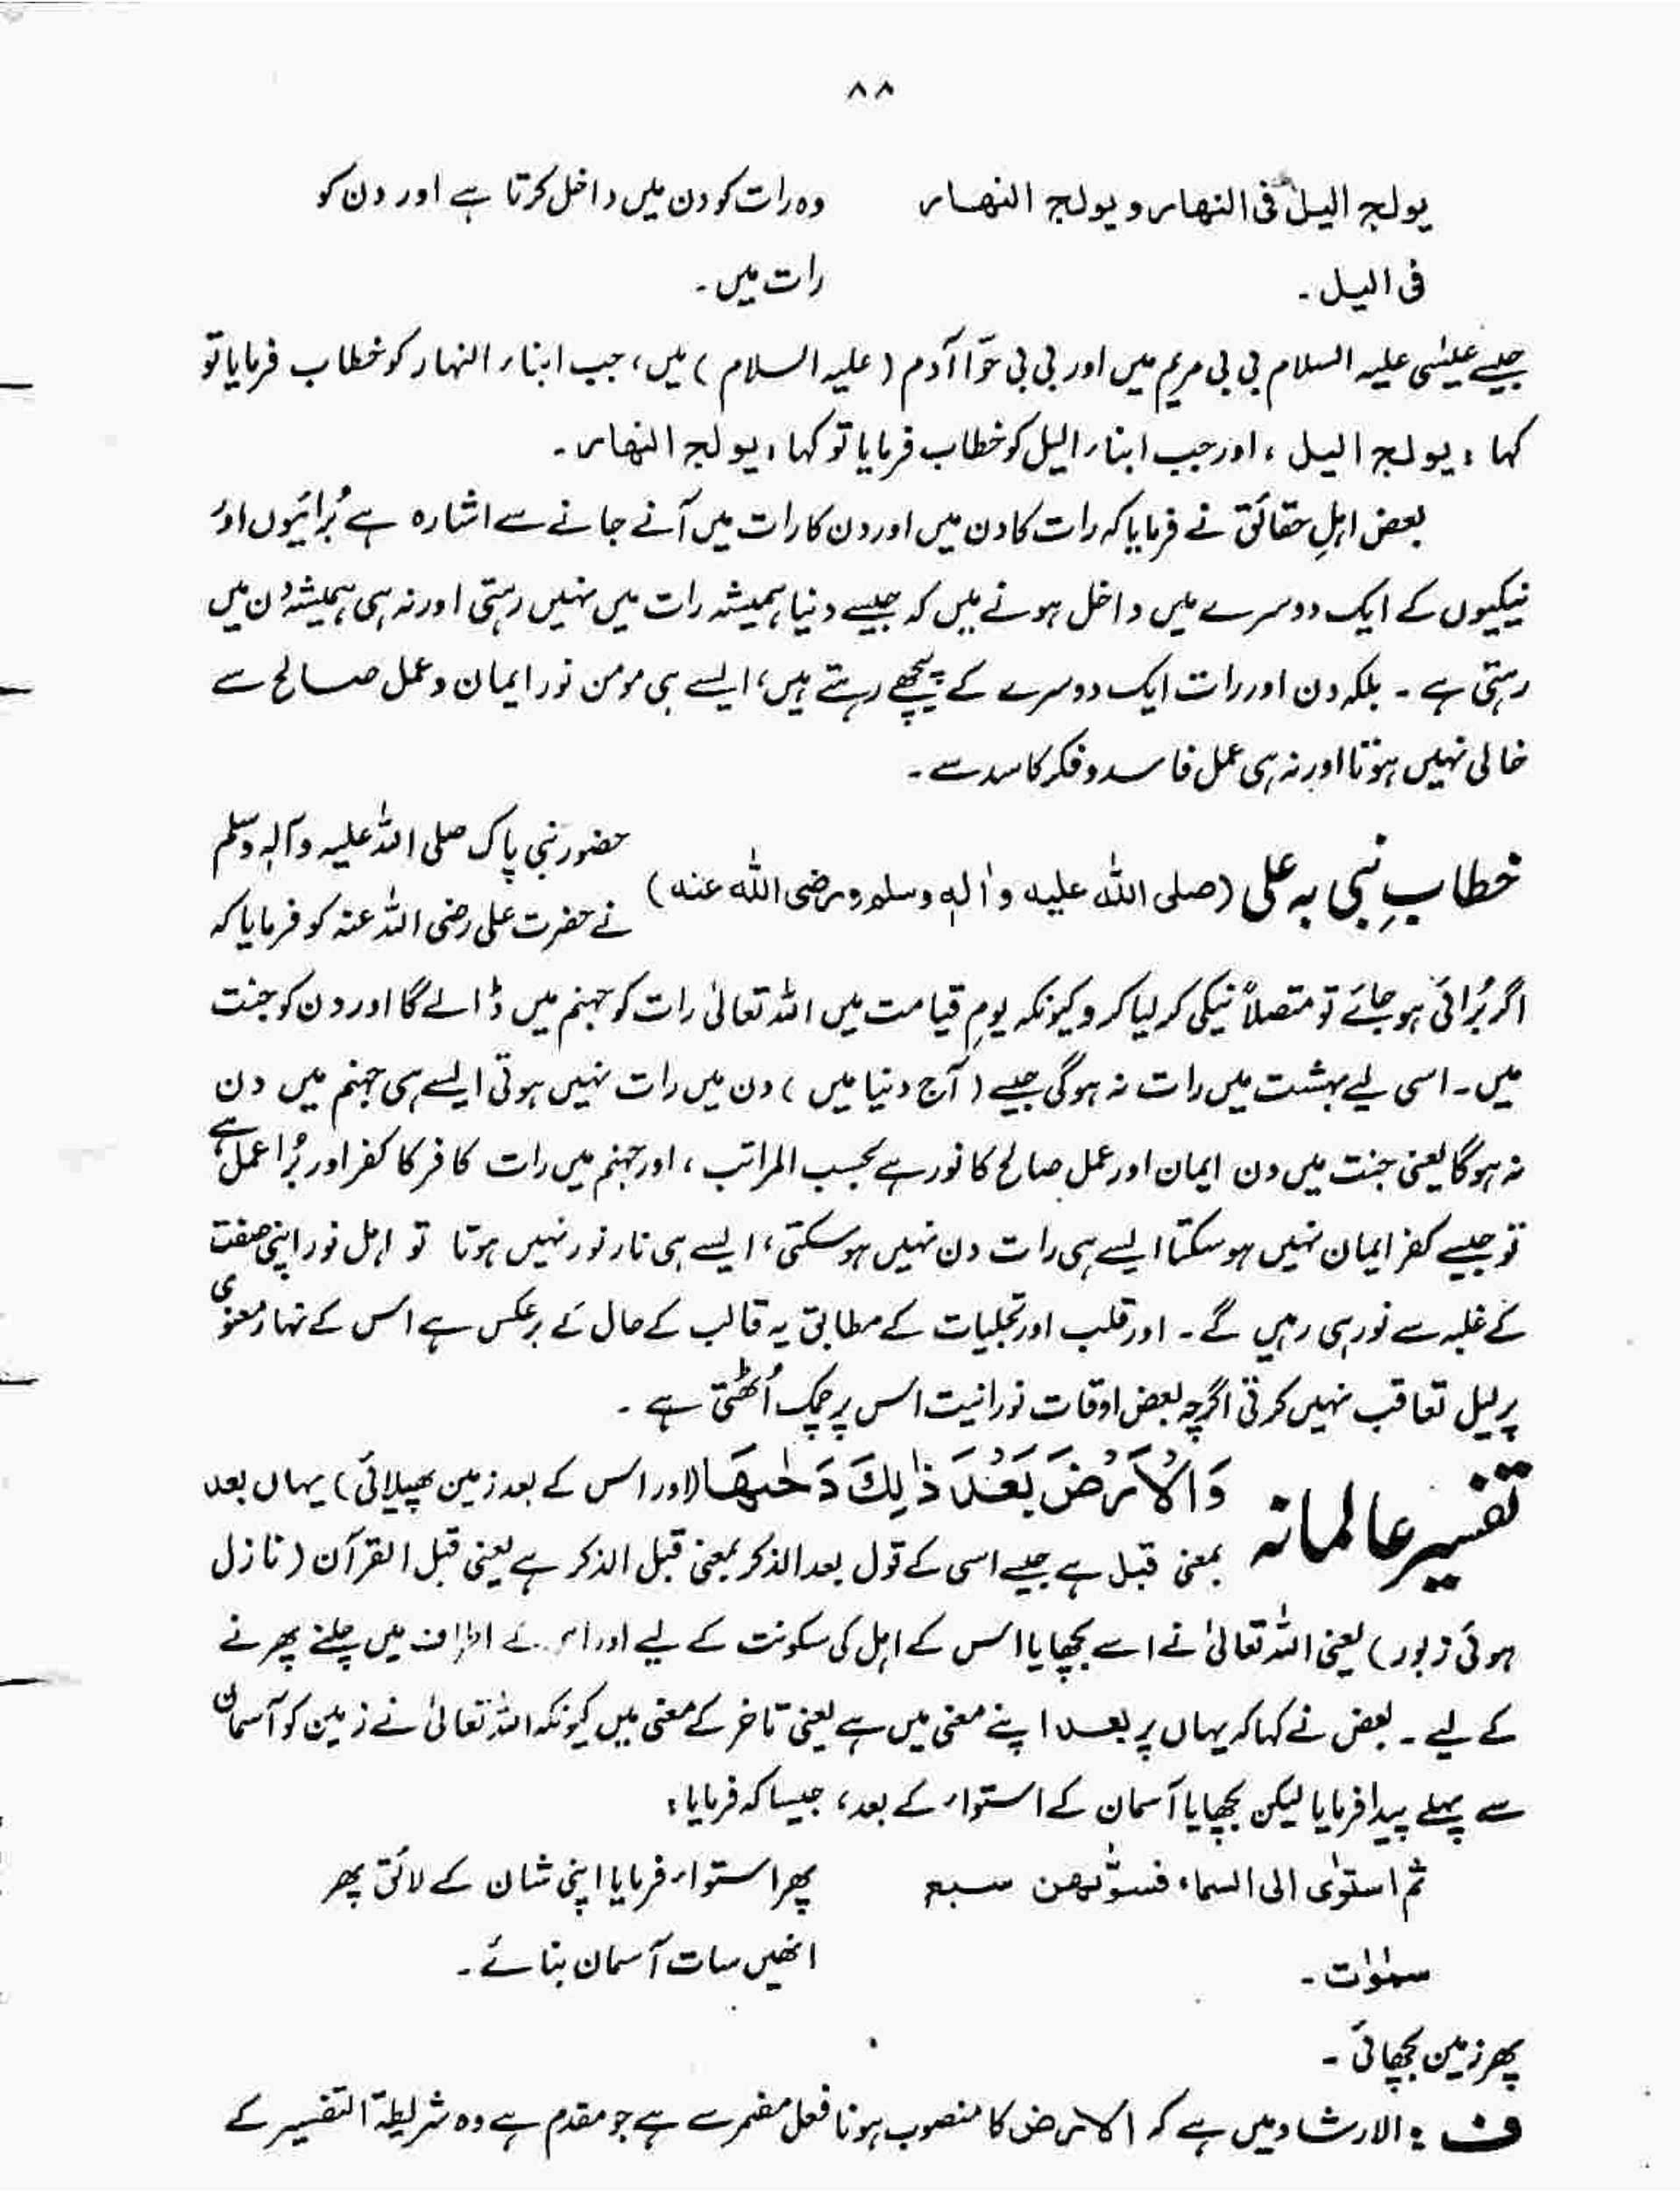 ۸۸
یولج الیل فی النهار و یولج النهار
فی الیل ۔
وہ رات کو دن میں داخل کرتا ہے اور دن کو
رات میں ۔
جیسے عیسٰی علیہ السلام بی بی مریم میں اور بی بی حوّا آدم ( علیہ السلام ) میں ، جب ابناء النہار کو خطاب فرمایا تو
کہا : یولج الیل ، اور جب ابناء الیل کو خطاب فرمایا تو کہا : یولج النهار ۔
بعض اہلِ حقائق نے فرمایا کہ رات کا دن میں اور دن کا رات میں آنے جانے سے اشارہ ہے بُرائیوں اور
نیکیوں کے ایک دوسرے میں داخل ہونے میں کہ جیسے دنیا ہمیشہ رات میں نہیں رہتی اور نہ ہی ہمیشہ دن میں
رہتی ہے ۔ بلکہ دن اور رات ایک دوسرے کے پیچھے رہتے ہیں ، ایسے ہی مومن نور ایمان و عمل صالح سے
خالی نہیں ہوتا اور نہ ہی عمل فاسد و فکر کاسد سے ۔
خطابِ نبی بہ علی (صلی الله علیه و اٰلہٖ وسلم و رضی الله عنه)
حضور نبی پاک صلی اللہ علیہ وآلہٖ وسلم
نے حضرت علی رضی اللہ عنہ کو فرمایا کہ
اگر بُرائی ہو جائے تو متصلاً نیکی کر لیا کرو کیونکہ یومِ قیامت میں اللہ تعالیٰ رات کو جہنم میں ڈالے گا اور دن کو جنت
میں ۔ اسی لیے بہشت میں رات نہ ہوگی جیسے ( آج دنیا میں ) دن میں رات نہیں ہوتی ایسے ہی جہنم میں دن
نہ ہوگا یعنی جنت میں دن ایمان اور عمل صالح کا نور ہے بحسب المراتب ، اور جہنم میں رات کافر کا کفر اور بُرا عمل ہے
تو جیسے کفر ایمان نہیں ہو سکتا ایسے ہی رات دن نہیں ہو سکتی ، ایسے ہی نار نور نہیں ہوتا تو اہل نور اپنی صفت
کے غلبہ سے نور ہی رہیں گے ۔ اور قلب اور تجلیات کے مطابق یہ قالب کے حال کے برعکس ہے اس کے نہار معنوی
پر لیل تعاقب نہیں کرتی اگرچہ بعض اوقات نورانیت اس پر چمک اُٹھتی ہے ۔
تفسیر عالمانہ
وَالْاَرْضَ بَعْدَ ذٰلِكَ دَحٰىهَا (اور اس کے بعد زمین پھیلائی ) یہاں بعد
بمعنی قبل ہے جیسے اسی کے قول بعد الذکر بمعنی قبل الذکر ہے یعنی قبل القرآن ( نازل
ہوئی زبور ) یعنی اللہ تعالیٰ نے اسے بچھایا اس کے اہل کی سکونت کے لیے اور اطراف میں چلنے پھرنے
کے لیے ۔ بعض نے کہا کہ یہاں پر بعد اپنے معنی میں ہے یعنی تاخر کے معنی میں کیونکہ اللہ تعالیٰ نے زمین کو آسمان
سے پہلے پیدا فرمایا لیکن بچھایا آسمان کے استواء کے بعد ، جیسا کہ فرمایا :
ثم استوٰی الی السماء فسوّٰىهن سبع
سمٰوٰت ۔
پھر استواء فرمایا اپنی شان کے لائق پھر
انھیں سات آسمان بنائے ۔
پھر زمین بچھائی ۔
ف : الارشاد میں ہے کہ الارض کا منصوب ہونا فعل مضمر سے ہے جو مقدم ہے وہ شریطۃ التفسیر کے